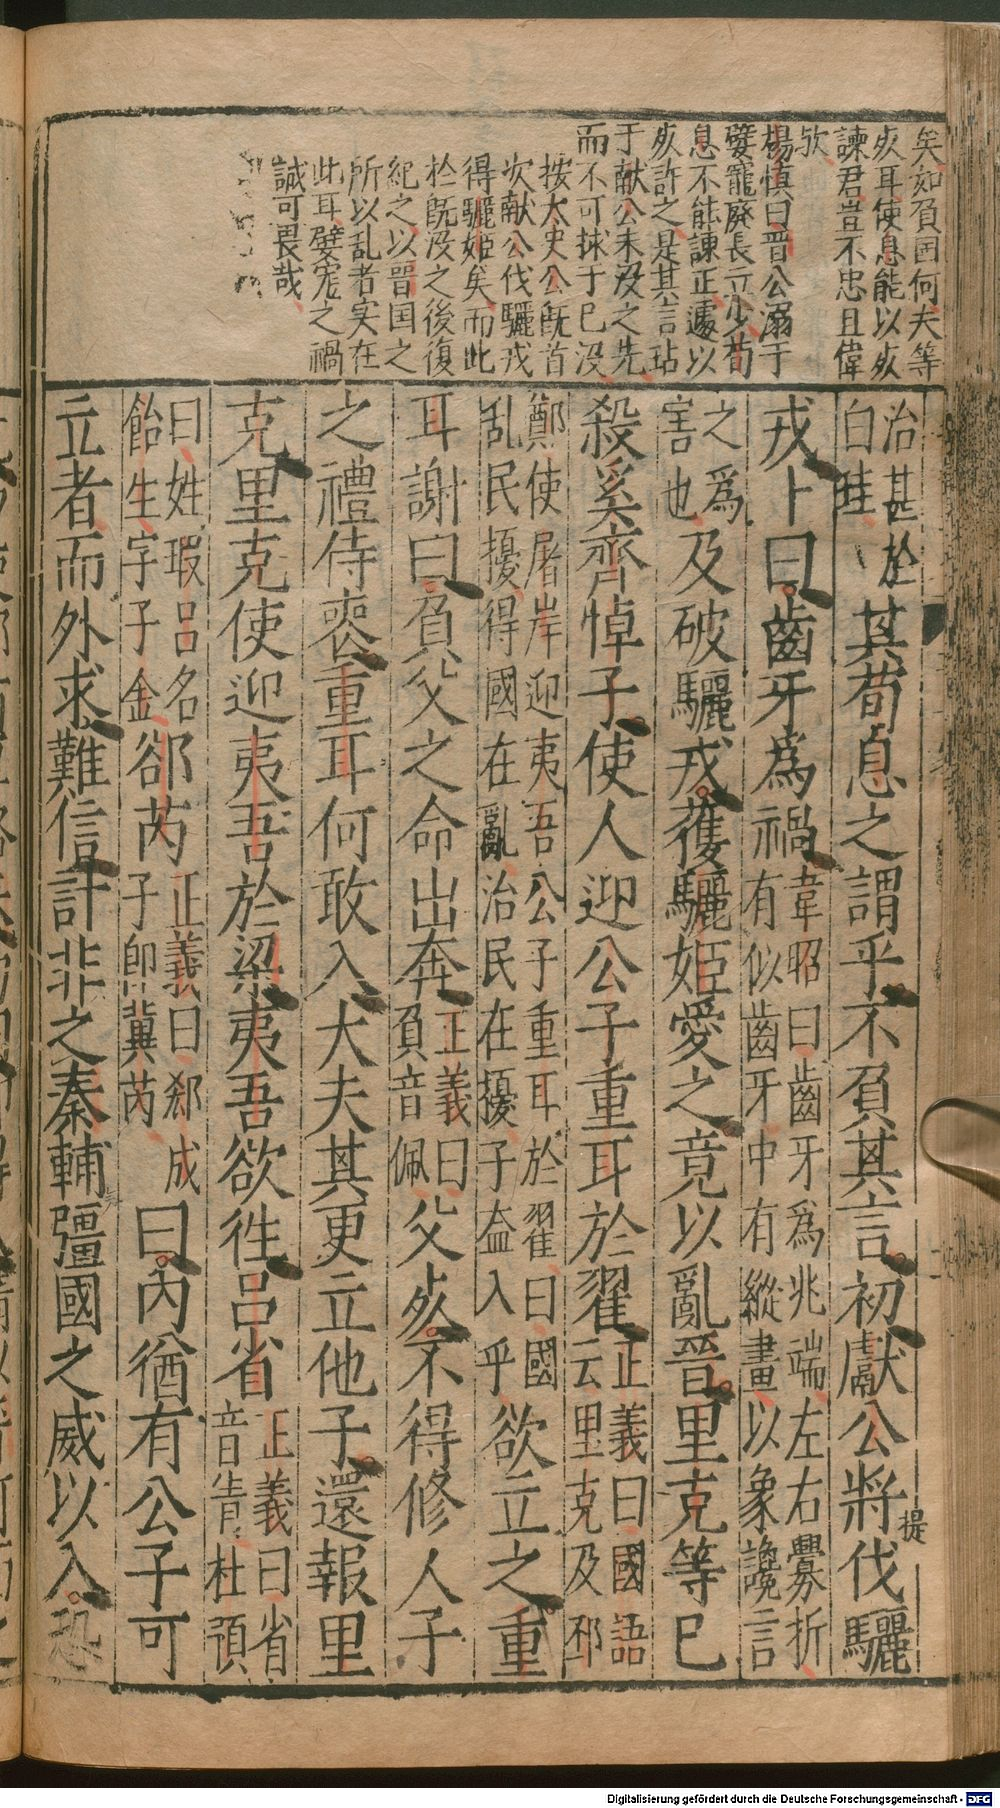 矣如負国何夫等
死耳使息能以死
諫君豈不忠且偉
欤
楊慎曰晋公溺于
嬖寵廢長立少荀
息不能諫正遽以
死許之是其言玷
于献公未没之先
而不可捄于已没
按太史公既首
次献公伐驪戎
得驪姬矣而此
於既没之後復
紀之以晋国之
所以乱者实在
此耳嬖宠之禍
誠可畏哉
治甚於
白珪
其荀息之謂乎不負其言初獻公將伐驪
提
戎卜曰齒牙爲禍
韋昭曰齒牙爲兆端左右釁折
有似齒牙中有縱畫以象讒言
之爲
害也
及破驪戎獲驪姬愛之竟以亂晉里克等已
殺奚齊悼子使人迎公子重耳於翟
正義曰國語
云里克及邳
鄭使屠岸迎夷吾公子重耳於翟曰國
乱民擾得國在亂治民在擾子盍入乎
欲立之重
耳謝曰負父之命出奔
正義曰
負音佩
父死不得修人子
之禮侍喪重耳何敢入大夫其更立他子還報里
克里克使迎夷吾於梁夷吾欲往呂省
正義曰省
音眚杜預
曰姓瑕呂名
飴生字子金
郤芮
正義曰郄成
子卽冀芮
曰內猶有公子可
立者而外求難信計非之秦輔彊國之威以入恐
Digitalisierung gefördert durch die Deutsche Forschungsgemeinschaft - DFG